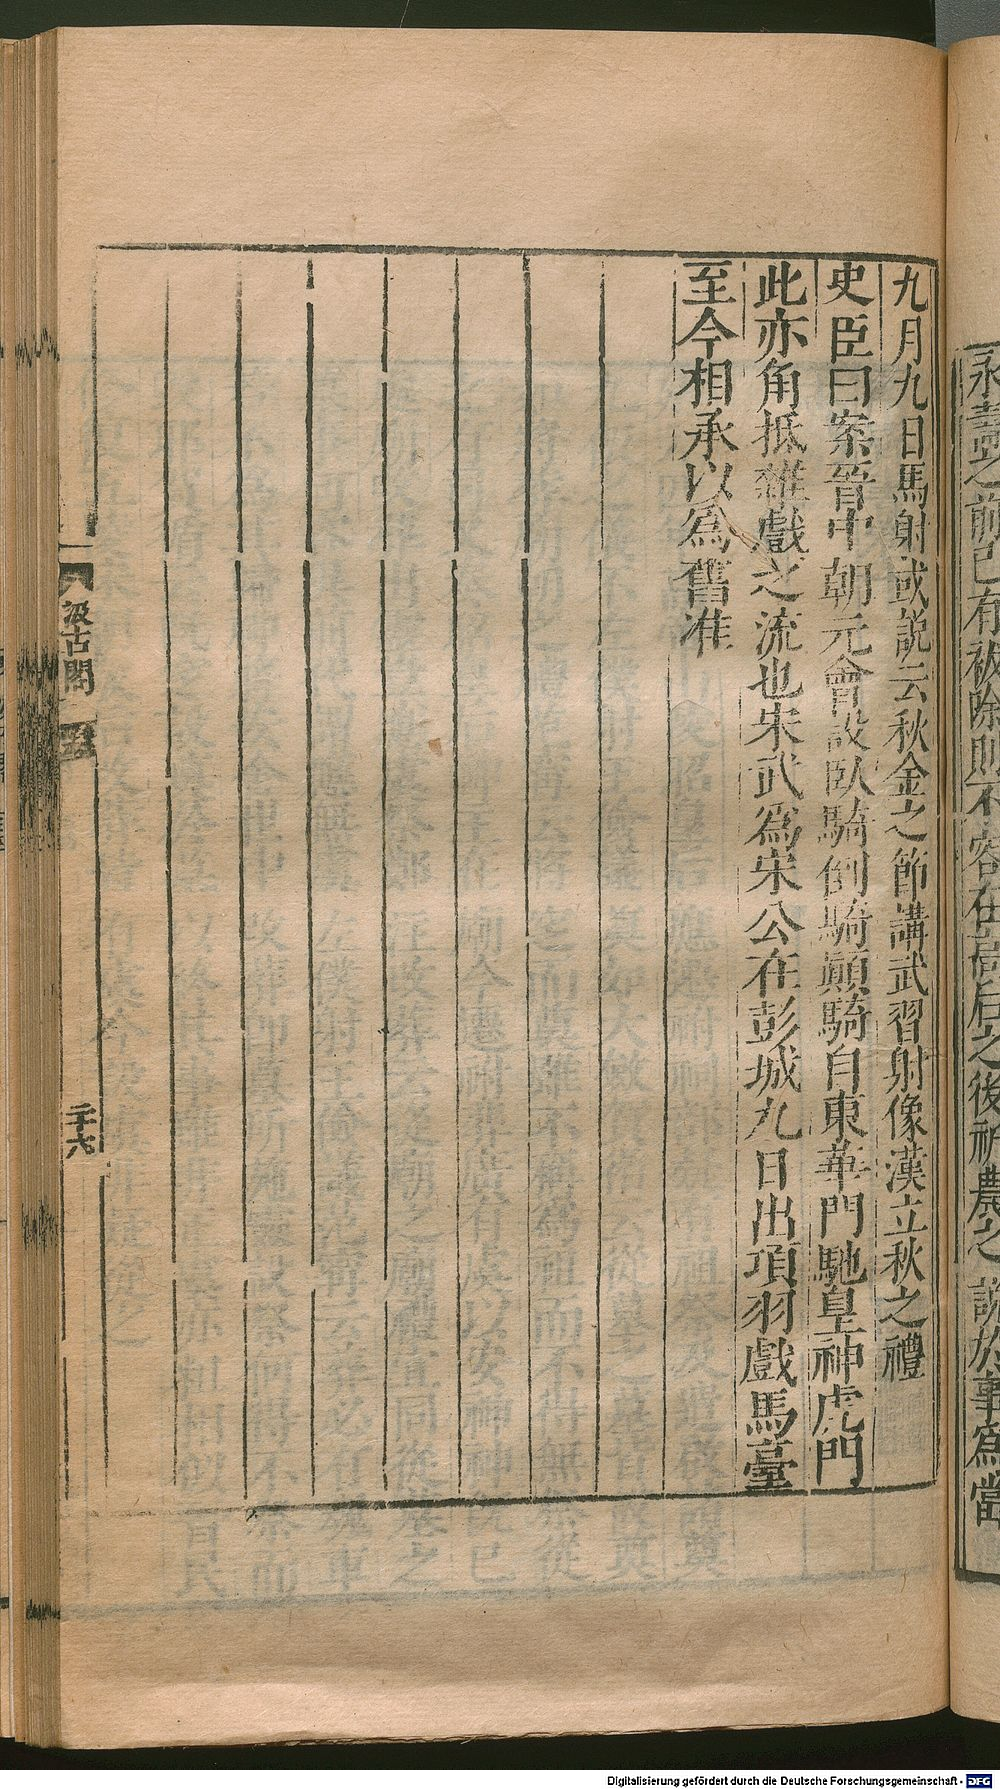 永嘉之前已有祓除則不容在高后之後祈農之說於事爲當
九月九日馬射或說云秋金之節講武習射像漢立秋之禮
史臣曰案晉中朝元會設臥騎倒騎顛騎自東華門馳皇神虎門
此亦角抵雜戲之流也宋武爲宋公在彭城九日出項羽戲馬臺
至今相承以爲舊准
汲古閣
二十六
Digitalisierung gefördert durch die Deutsche Forschungsgemeinschaft - DFG